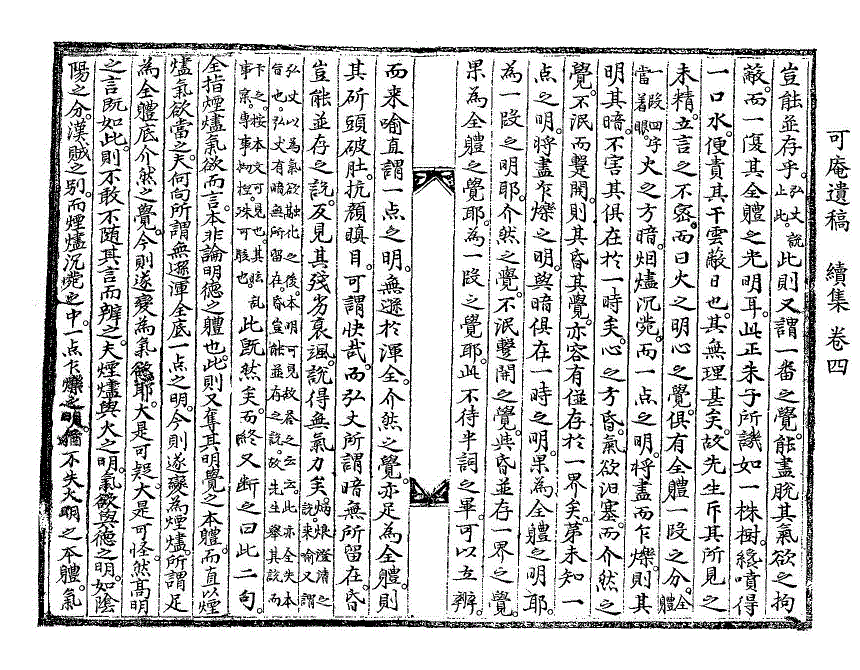 可庵遺稿 續集 卷四
豈能並存乎。弘丈說止此。此則又謂一番之覺。能盡脫其氣欲之拘
蔽。而一復其全體之光明耳。此正朱子所譏如一株樹。纔噴得
一口水。便責其干雲蔽日也。其無理甚矣。故先生斥其所見之
未精。立言之不密。而曰火之明心之覺。俱有全體一段之分。全體
一段四字當着眼。火之方暗。烟爐沉晃。而一点之明。將盡而乍爍。則其
明其暗。不害其俱在於一時矣。心之方昏。氣欲汩塞。而介然之
覺。不泯而蹔開。則其昏其覺。亦容有僅存於一界矣。第未知一
点之明。將盡乍爍之明。與暗俱在一時之明。果為全體之明耶。
為一段之明耶。介然之覺。不泯蹔開之覺。與昏並存一界之覺。
果為全體之覺耶。為一段之覺耶。此不待半詞之畢。可以立辨。
而来喻直謂一点之明。無遜於渾全。介然之覺。亦足為全體。則
其斫頭破肚。抗顔瞋目。可謂快哉。而弘丈所謂暗無所留在。昏
豈能並存之說。反見其殘劣衰颯。說得無氣力矣。煥澄清之說。来喻又謂
弘丈以為氣欲融化之後。本明可見。故答之云云。此亦全失本
旨也。弘丈有暗無所留在昏豈能並存之說。故先生舉其說而
卞之。按本文可見也。其眩乱
事案。專事抝捏。殊可駭也。此旣然矣。而終又断之曰此二句。
全指煙爐氣欲而言。本非論明德之體也。此則又奪其明覺之本體。而直以煙
爐氣欲當之。夫何向所謂無遜渾全底一点之明。今則遂變為煙爐。所謂足
為全體底介然之覺。今則遂變為氣欲耶。大是可疑。大是可怪。然高明
之言旣如此。則不敢不随其言而辨之。夫煙爐與火之明。氣欲與德之明。如陰
陽之分。漢賊之别。而煙爐沉晃之中。一点乍爍之明。猶不失火明之本體。氣